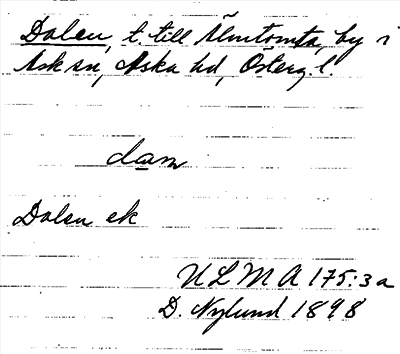 Dalen, t. till Älmtomta, by i
Ask sn, Aska hd, Österg. l.
dam
Dalen ek
ULMA 175:3a
D. Nylund 1898